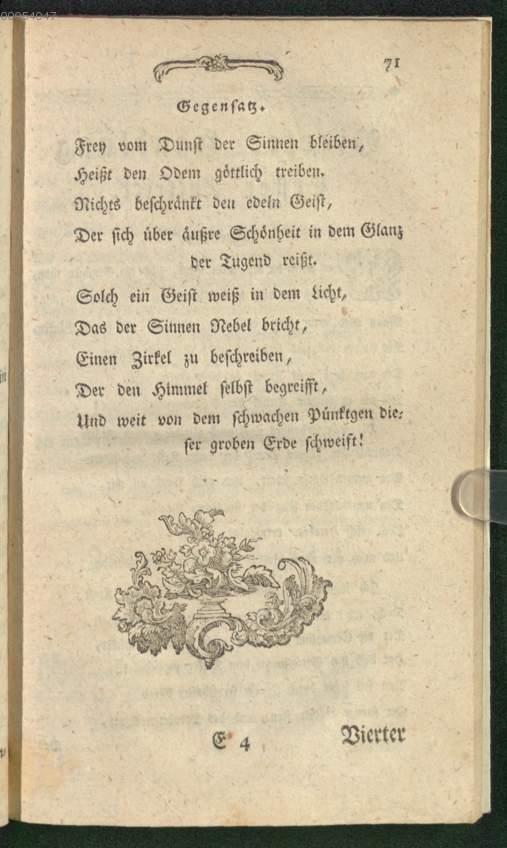 00054047
71
Gegensatz.
Frey vom Dunst der Sinnen bleiben,
Heißt den Odem göttlich treiben.
Nichts beschränkt den edeln Geist,
Der sich über äußre Schönheit in dem Glanz
der Tugend reißt.
Solch ein Geist weiß in dem Licht,
Das der Sinnen Nebel bricht,
Einen Zirkel zu beschreiben,
Der den Himmel selbst begreifft,
Und weit von dem schwachen Pünktgen die-
ser groben Erde schweift!
E 4
Vierter